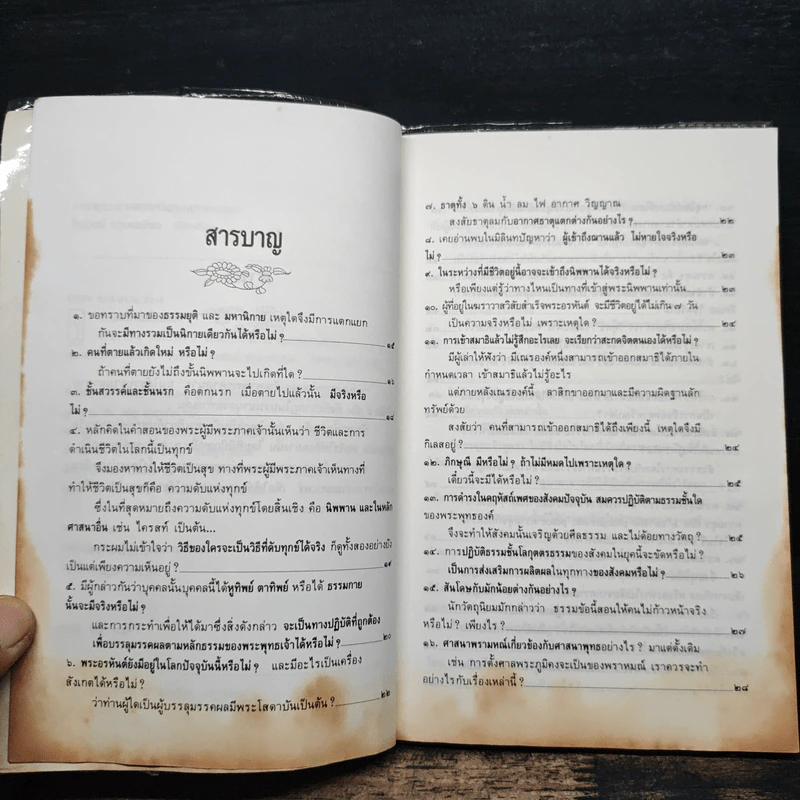 สารบาญ
๑. ขอทราบที่มาของธรรมยุติ และ มหานิกาย เหตุใดจึงมีการแตกแยก
กันจะมีทางรวมเป็นนิกายเดียวกันได้หรือไม่ ? ๑๕
๒. คนที่ตายแล้วเกิดใหม่ หรือไม่ ?
ถ้าคนที่ตายยังไม่ถึงขั้นนิพพานจะไปเกิดที่ใด ? ๑๖
๓. ชั้นสวรรค์และชั้นนรก คือตกนรก เมื่อตายไปแล้วนั้น มีจริงหรือ
ไม่ ? ๑๘
๔. หลักคิดในคำสอนของพระผู้มีพระภาคเจ้านั้นเห็นว่า ชีวิตและการ
ดำเนินชีวิตในโลกนี้เป็นทุกข์
จึงมองหาทางให้ชีวิตเป็นสุข ทางที่พระผู้มีพระภาคเจ้าเห็นทางที่
ทำให้ชีวิตเป็นสุขก็คือ ความดับแห่งทุกข์
ซึ่งในที่สุดหมายถึงความดับแห่งทุกข์โดยสิ้นเชิง คือ นิพพาน และในหลัก
ศาสนาอื่น เช่น ไครสท์ เป็นต้น...
กระผมไม่เข้าใจว่า วิธีของใครจะเป็นวิธีที่ดับทุกข์ได้จริง ก็ดูทั้งสองอย่างยัง
เป็นแต่เพียงความเห็นอยู่ ? ๑๙
๕. มีผู้กล่าวกันว่าบุคคลนั้นบุคคลนี้ได้หูทิพย์ ตาทิพย์ หรือได้ ธรรมกาย
นั้นจะมีจริงหรือไม่ ?
และการกระทำเพื่อให้ได้มาซึ่งสิ่งดังกล่าว จะเป็นทางปฏิบัติที่ถูกต้อง
เพื่อบรรลุมรรคผลตามหลักธรรมของพระพุทธเจ้าได้หรือไม่ ? ๒๐
๖. พระอรหันต์ยังมีอยู่ในโลกปัจจุบันนี้หรือไม่ ? และมีอะไรเป็นเครื่อง
สังเกตได้หรือไม่ ?
ว่าท่านผู้ใดเป็นผู้บรรลุมรรคผลมีพระโสดาบันเป็นต้น ? ๒๒
๗. ธาตุทั้ง ๖ ดิน น้ำ ลม ไฟ อากาศ วิญญาณ
สงสัยธาตุลมกับอากาศธาตุแตกต่างกันอย่างไร ? ๒๒
๘. เคยอ่านพบในมิลินทปัญหาว่า ผู้เข้าถึงฌานแล้ว ไม่หายใจจริงหรือ
ไม่ ? ๒๓
๙. ในระหว่างที่มีชีวิตอยู่นี้อาจจะเข้าถึงนิพพานได้จริงหรือไม่ ?
หรือเพียงแต่รู้ว่าทางไหนเป็นทางที่เข้าสู่พระนิพพานเท่านั้น ๒๓
๑๐. ผู้ที่อยู่ในฆราวาสวิสัยสำเร็จพระอรหันต์ จะมีชีวิตอยู่ได้ไม่เกิน ๗ วัน
เป็นความจริงหรือไม่ เพราะเหตุใด ? ๒๔
๑๑. การเข้าสมาธิแล้วไม่รู้สึกอะไรเลย จะเรียกว่าสะกดจิตตนเองได้หรือไม่ ?
มีผู้เล่าให้ฟังว่า มีเณรองค์หนึ่งสามารถเข้าออกสมาธิได้ภายใน
กำหนดเวลา เข้าสมาธิแล้วไม่รู้อะไร
แต่ภายหลังเณรองค์นี้ ลาสิกขาออกมาและมีความผิดฐานลัก
ทรัพย์ด้วย
สงสัยว่า คนที่สามารถเข้าออกสมาธิได้ถึงเพียงนี้ เหตุใดจึงมี
กิเลสอยู่ ? ๒๔
๑๒. ภิกษุณี มีหรือไม่ ? ถ้าไม่มีหมดไปเพราะเหตุใด ?
เดี๋ยวนี้จะมีได้หรือไม่ ? ๒๕
๑๓. การดำรงในคฤหัสถ์เพศของสังคมปัจจุบัน สมควรปฏิบัติตามธรรมชั้นใด
ของพระพุทธองค์
จึงจะทำให้สังคมนั้นเจริญด้วยศีลธรรม และไม่ด้อยทางวัตถุ ? ๒๕
๑๔. การปฏิบัติธรรมชั้นโลกุตตรธรรมของสังคมในยุคนี้จะขัดหรือไม่ ?
เป็นการส่งเสริมการผลิตผลในทุกทางของสังคมหรือไม่ ? ๒๖
๑๕. สันโดษกับมักน้อยต่างกันอย่างไร ?
นักวัตถุนิยมมักกล่าวว่า ธรรมข้อนี้สอนให้คนไม่ก้าวหน้าจริง
หรือไม่ ? เพียงไร ? ๒๗
๑๖. ศาสนาพราหมณ์เกี่ยวข้องกับศาสนาพุทธอย่างไร ? มาแต่ดั้งเดิม
เช่น การตั้งศาลพระภูมิคงจะเป็นของพราหมณ์ เราควรจะทำ
อย่างไรกับเรื่องเหล่านี้ ? ๒๘